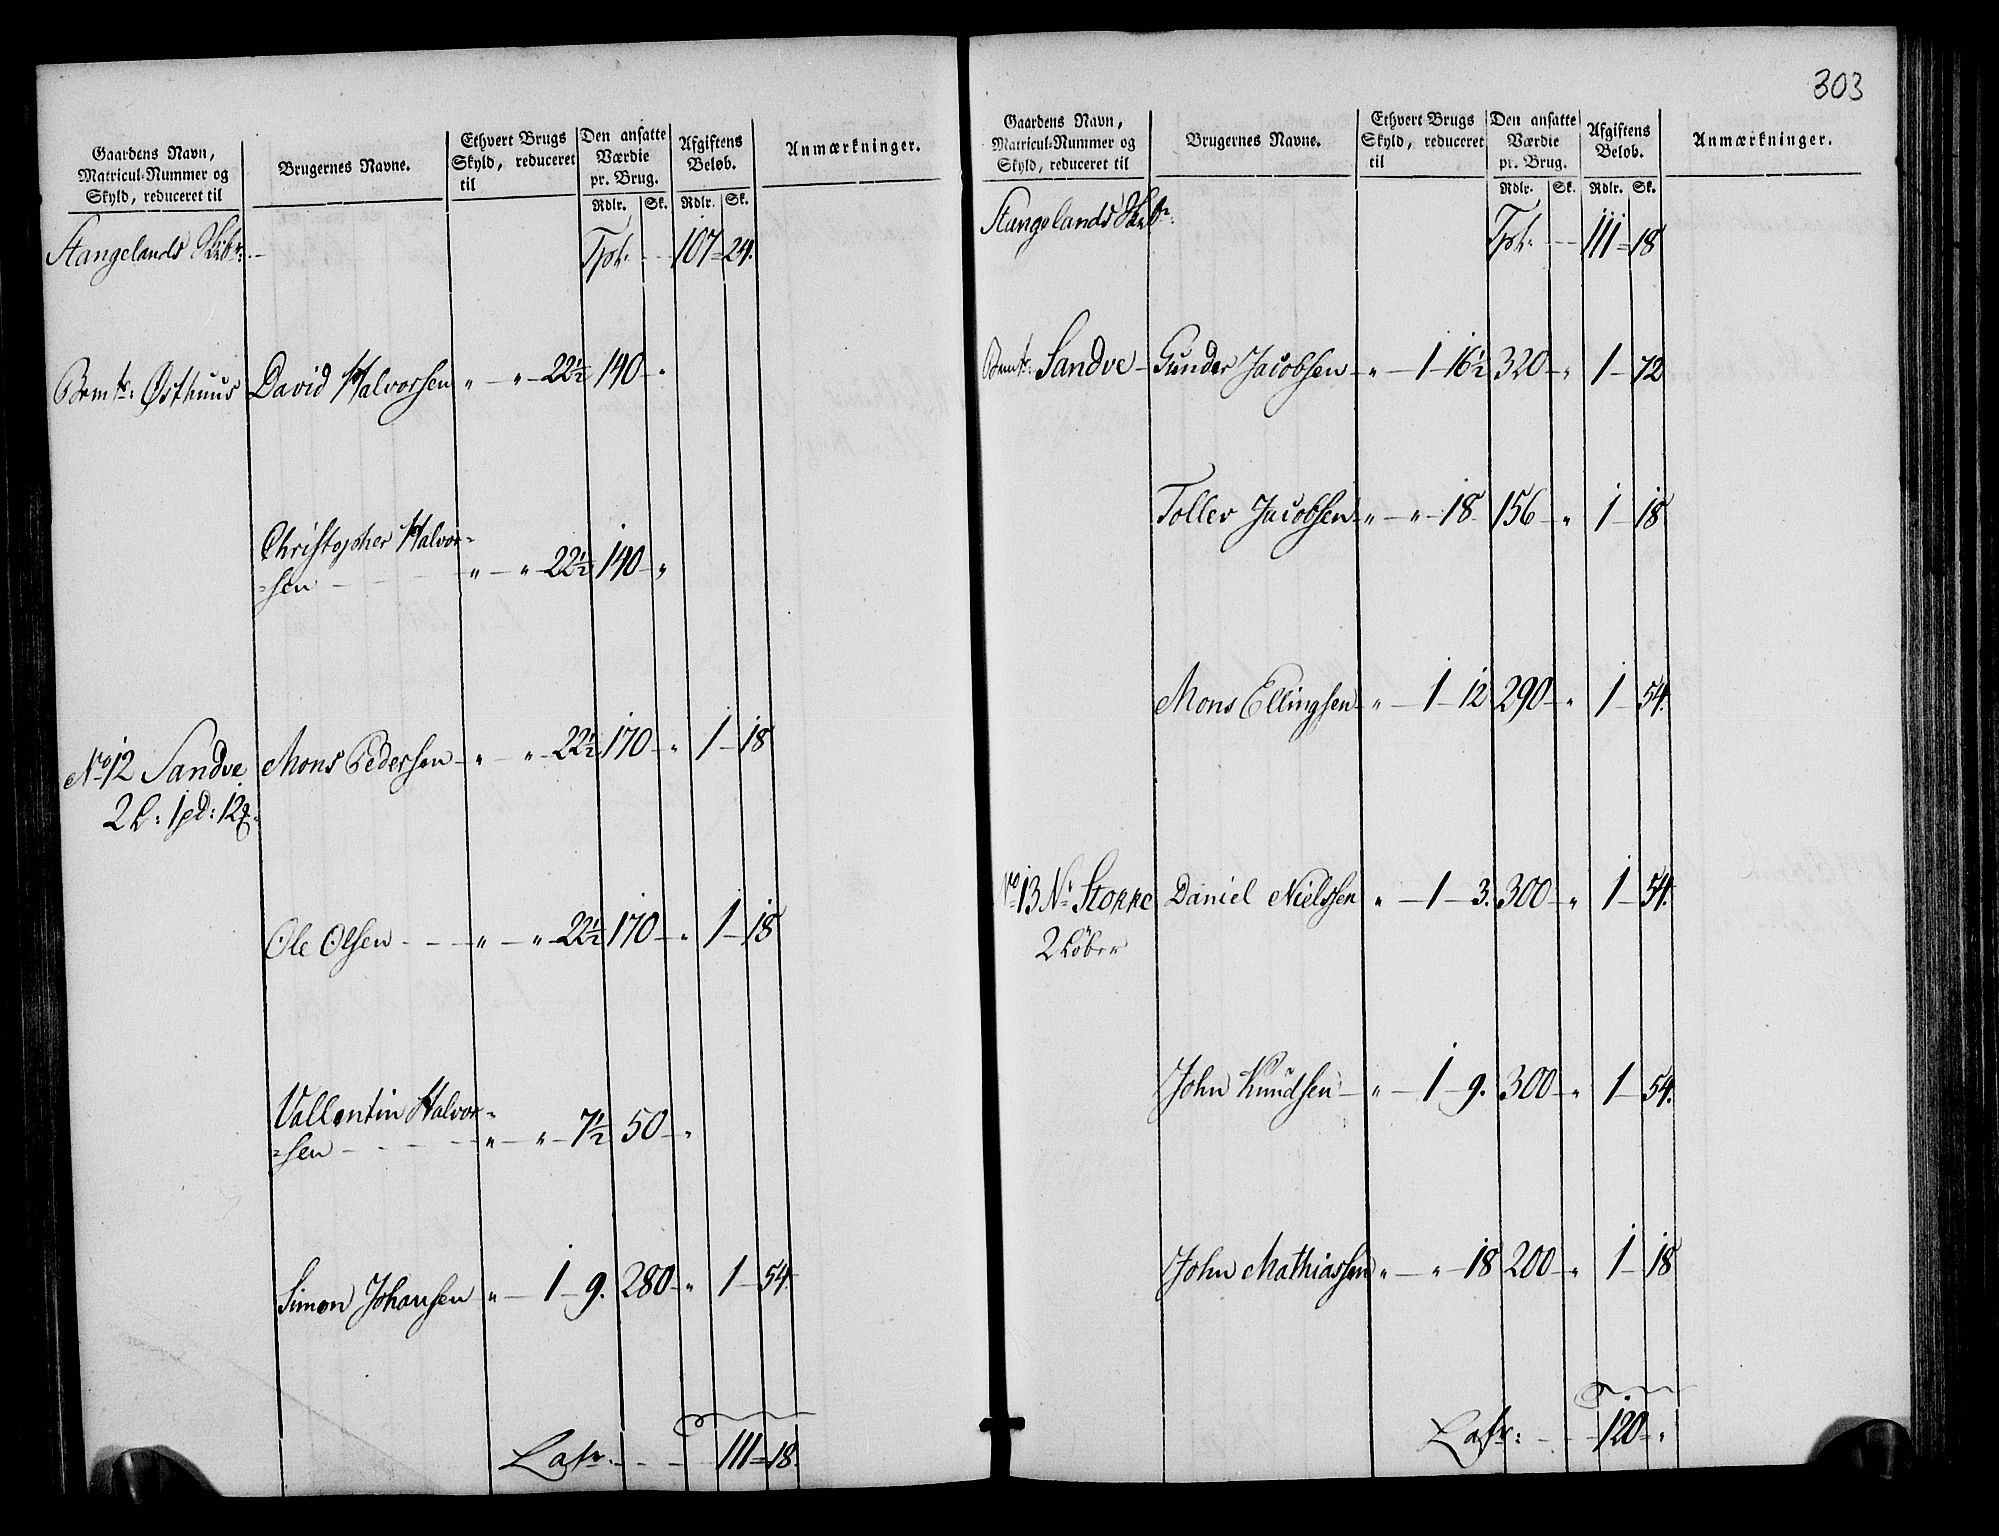 Gaardens Navn,
Matricul-Nummer og
Skyld, reduceret til
Brugernes Navne.
Ethvert Brugs
Skyld, reduceret
til
Den ansatte
Værdie
pr. Brug.
Rdlr. Sk.
Afgiftens
Beløb.
Rdlr. Sk.
Anmærkninger.
Stangelands Skibr: Tpt: 107 = 24.
Bemt: Østhuus David Halvorsen " — " — 22½ 140 — "
Christopher Halvor=
=sen " — " — 22½ 140 — "
No 12 Sandve Mons Pedersen — " — " — 22½ 170 — " 1 — 18
2 L: 1 pd: 12
Ole Olsen " — " — 22½ 170 — " 1 — 18
Vallentin Halvor=
=sen " — " — 7½ 50 — "
Simon Johansen " — 1 — 9. 280 — " 1 — 54.
Latr: 111 = 18.
303
Gaardens Navn,
Matricul-Nummer og
Skyld, reduceret til
Brugernes Navne.
Ethvert Brugs
Skyld, reduceret
til
Den ansatte
Værdie
pr. Brug.
Rdlr. Sk.
Afgiftens
Beløb.
Rdlr. Sk.
Anmærkninger.
Stangelands Skibr: Tpt: 111 = 18
Bemt: Sandve — Gunder Jacobsen — " — 1 — 16½ 320 — " 1 — 72
Tollev Jacobsen — " — " — 18 156 — " 1 — 18
Mons Ellingsen " — 1 — 12 290 — " 1 — 54.
No 13 Nr Stokke Daniel Nielssen " — 1 — 3. 300 — " 1 — 54.
2 Løber
John Knudsen — " — 1 — 9. 300 — " 1 — 54.
John Mathiassen " — " — 18 200 — " 1 — 18
Latr: 120 — "